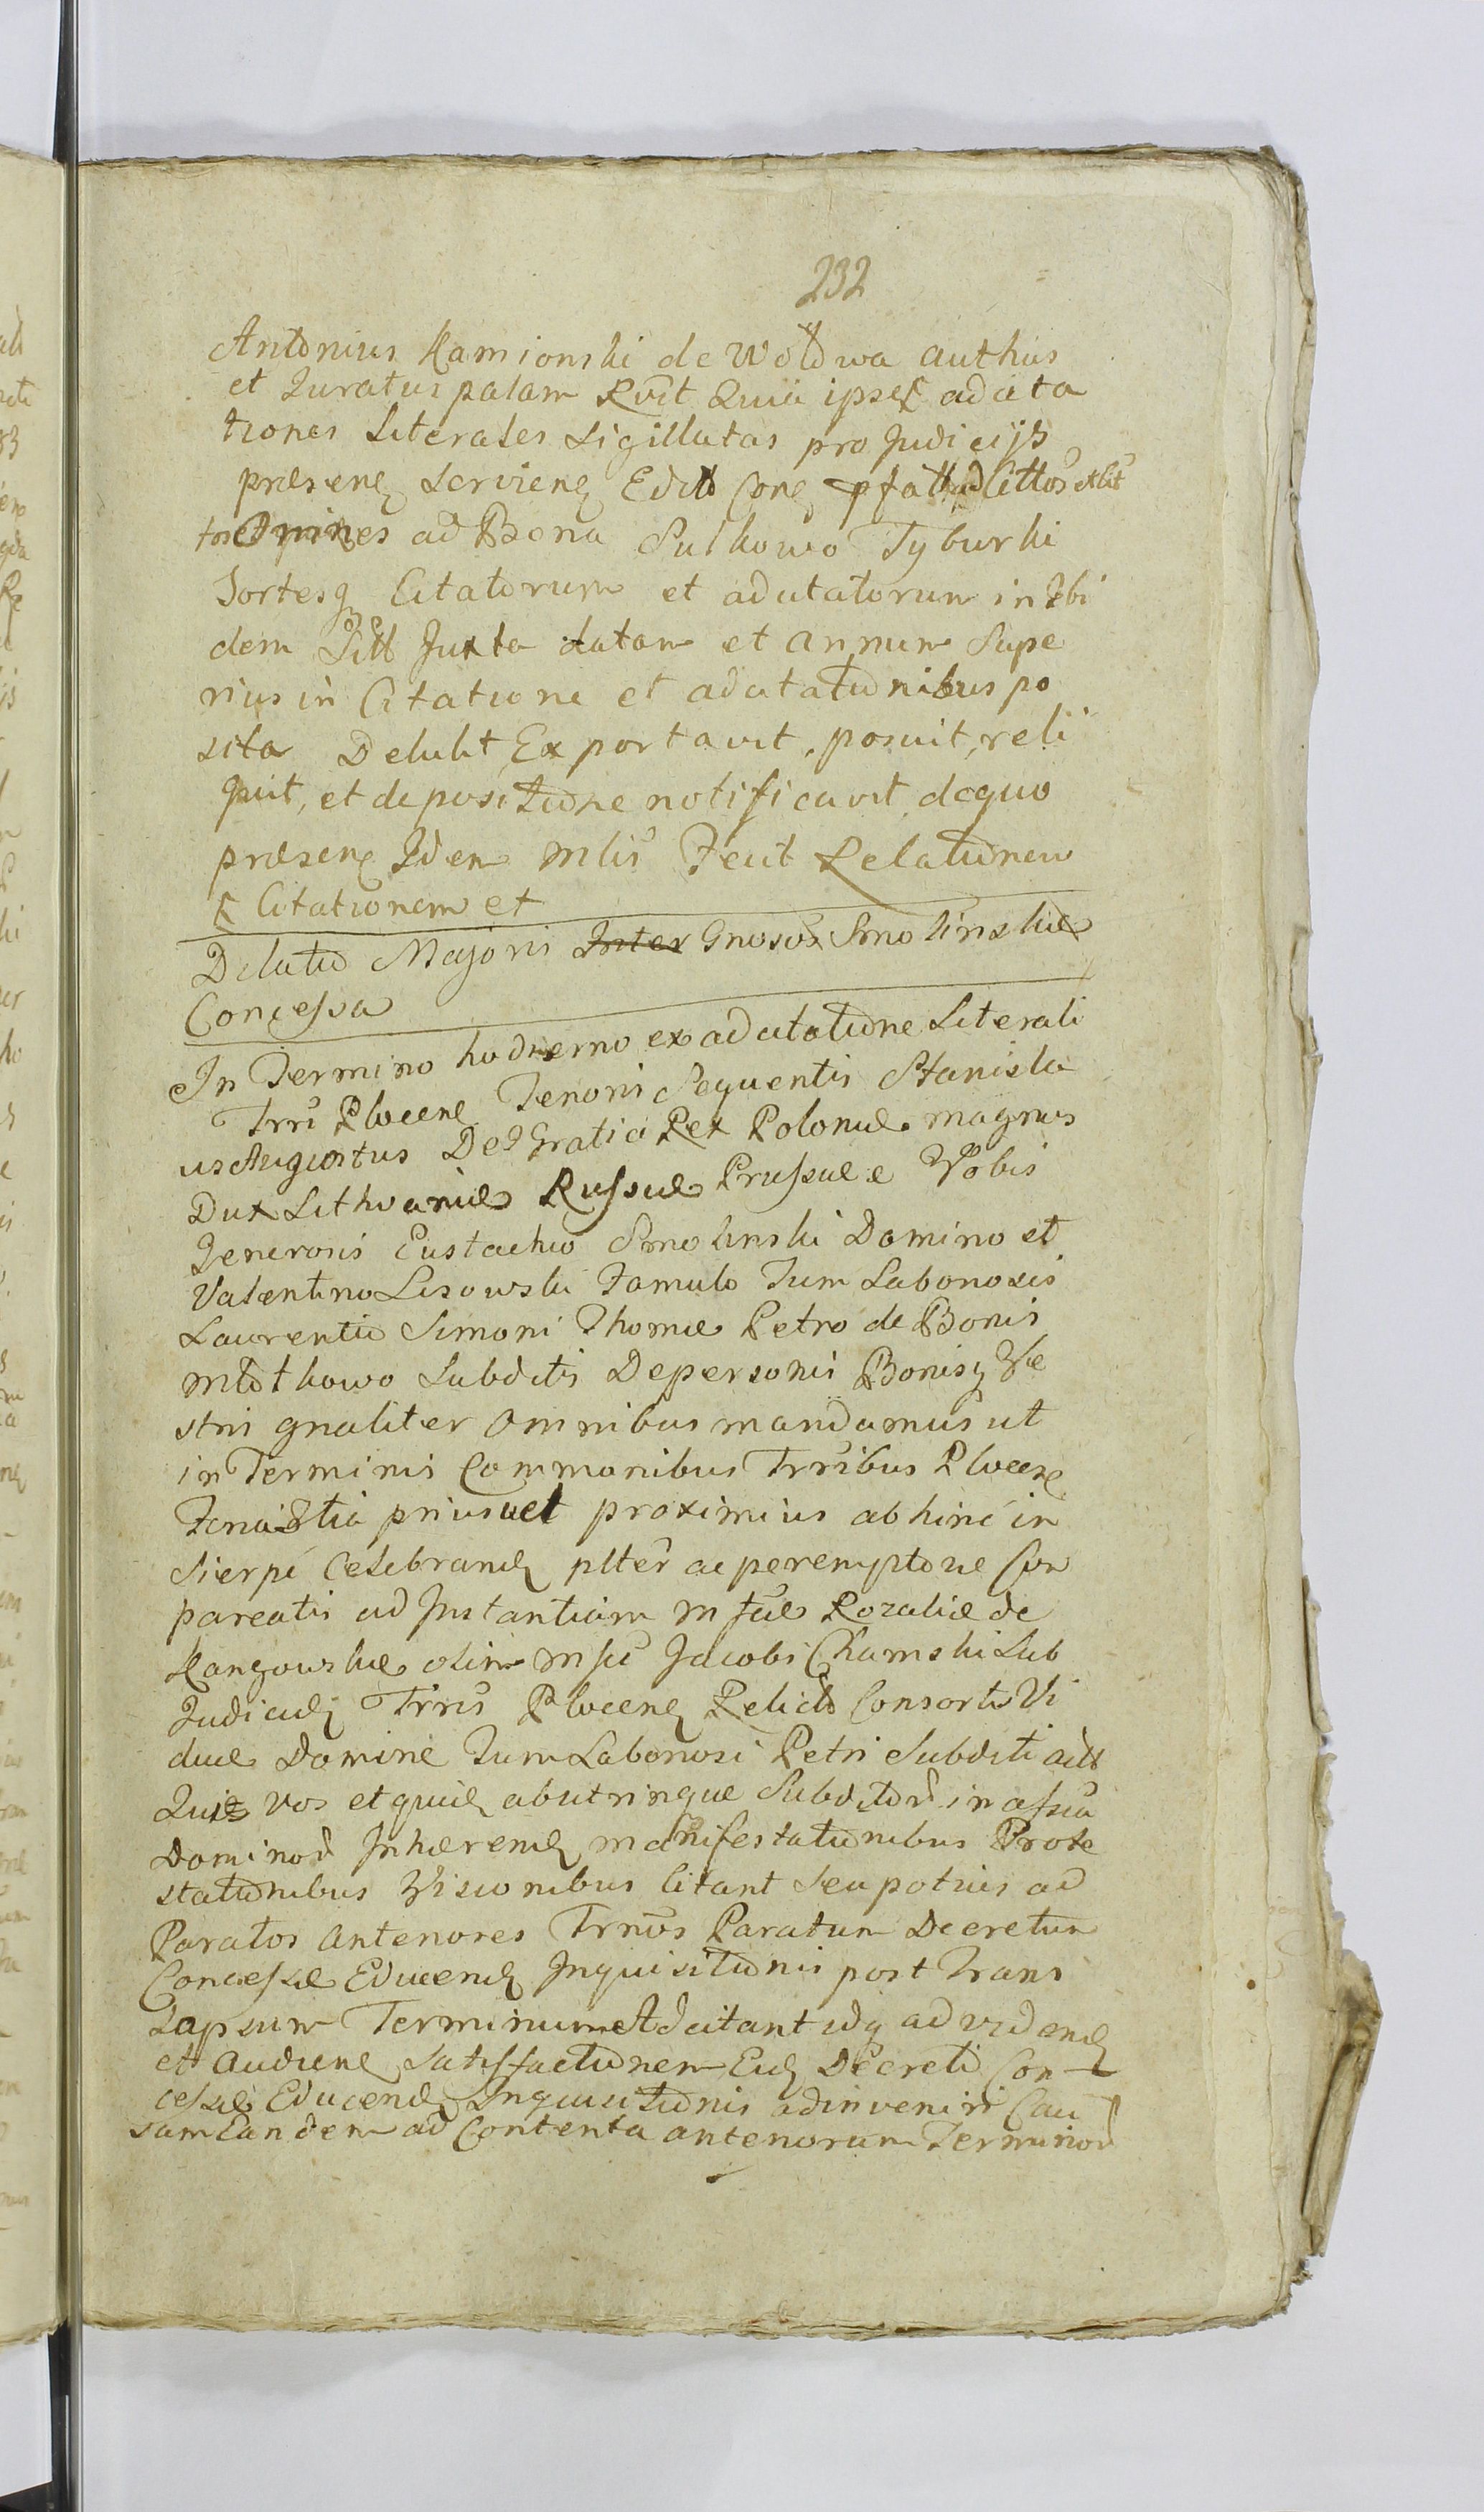 232
Antonius Kamionski de Woldwa authus
et Juratus palam Rvit Quia ipse adcita
tiones Literales Sigillatas pro Judicijs
præsene Serviene Edit Cone
Omnes ad Bona Sulkowo Tyburki
Sortesq Citatorum et adcitatorum in Ibi
dem Juxta datam et annum Supe
rius in Citatione et adcitationibus po
sita Detulit, Exportavit, posuit, reli
quit, et de positione notificavit, dequo
præsene Idem Mlis Fecit Relationem
Citationem et
Dilatio Majoris Inter Gnosos Smolinskie
Concessa
In Termino hodierno ex adcitatione Literali
Trri Plocene Tenoris Sequentis Stanisla
us Augustus Dei Gratia Rex Poloniæ magnus
Dux Lithvaniæ Russiæ Prussiæ e Vobis
Generosis Eustachio Smolinski Domino et
Valentino Lisowski Famulo Tum Laboriosis
Laurentio Simoni Thomæ Petro de Bonis
Mlotkowo Subditis De personis Bonisq Ve
stris gnaliter omnibus mandamus ut
in Terminis Communibus Trribus Plocene
Feria 3tia prius vel proximius abhinc in
Sierpc Celebrand plter ac peremptorie Com
pareatis ad Instantiam Mfcæ Rozaliæ de
Kangowskie olim Mfci Jacobi Chamski Sub
Judicis Trris Plocene Relictæ Consortis Vi
duæ Dominæ Tum Laboriosi Petri Subditi
Quæ vos et quilt ab utrinque Subditor in assia
Dominor Inhærend manifestationibus Prote
stationibus Visionibus Citant Seu potius ad
Paratos anteriores Trnos Paratum Decretum
Concessæ Educend Inquisitionis post Trans
lapsum Terminum Adcitant idq ad vidend
et Audiend Satisfactionem Eid Decreti Con-
cessæ Educend Inquisitionis adinveniri Cau
sam Eandem ad Contenta anteriorum Terminor